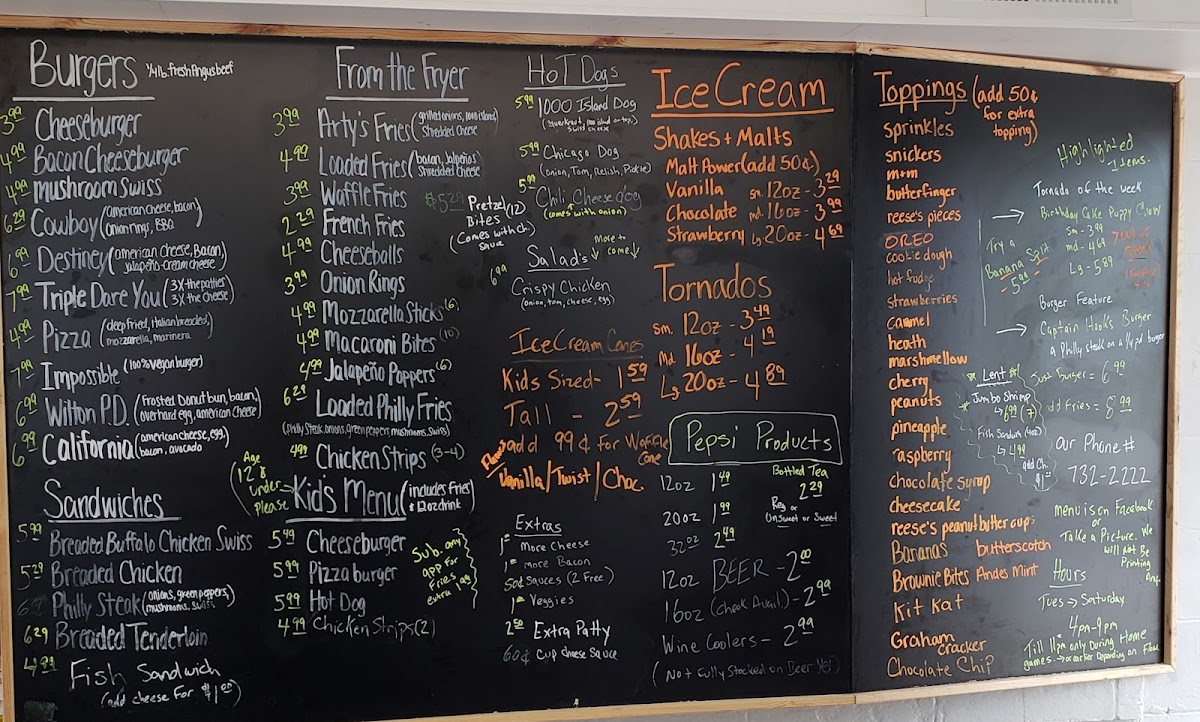 Burgers 1/4 lb. fresh Angus beef
3.99 Cheeseburger
4.99 Bacon Cheeseburger
4.99 mushroom Swiss
6.29 Cowboy (american cheese, bacon, onion rings, BBQ)
6.99 Destiny (american cheese, Bacon, Jalapeño-cream cheese)
7.99 Triple Dare You (3X the patties 3X the cheese)
4.99 Pizza (deep fried, Italian breaded, mozzarella, marinera)
7.99 Impossible (100% vegan burger)
6.99 Wilton P.D. (Frosted Donut bun, bacon, overhard egg, american cheese)
6.99 California (american cheese, egg, bacon, avocado)
Sandwiches
5.99 Breaded Buffalo Chicken Swiss
5.29 Breaded Chicken
Philly Steak (onions, green peppers, mushrooms, swiss)
6.29 Breaded Tenderloin
4.99 Fish Sandwich
(add cheese for $1.00)
From the Fryer
3.99 Arty's Fries (grilled onions, 1000 island, Shredded cheese)
4.99 Loaded Fries (bacon, Jalpeños Shredded cheese)
3.99 Waffle Fries
2.29 French Fries
4.99 Cheeseballs
3.99 Onion Rings
4.99 Mozzarella Sticks (6)
4.99 Macaroni Bites (10)
4.99 Jalapeño Poppers (6)
6.29 Loaded Philly Fries
(Philly Steak, onions, green peppers, mushrooms, Swiss)
4.99 Chicken Strips (3-4)
$5.29 Pretzel Bites (12)
(Comes with ch. sauce
Age 12 & under please
Kid's Menu (includes Fries & 12oz drink
5.49 Cheeseburger
5.99 Pizza burger
5.99 Hot Dog
4.99 Chicken Strips (2)
Sub. any app for fries extra 1.99
Hot Dogs
5.99 1000 Island Dog
(Sauerkraut, 1000 island on top, Swiss cheese)
5.99 Chicago Dog
(onion, Tom, Relish, Pickle)
5.99 Chili Cheese dog
(comes with onion)
Salads more to come
6.99 Crispy Chicken
(onion, tom, cheese, egg)
Ice Cream Cones
Kids Sized - 1.59
Tall - 2.59
add 99¢ for Waffle Cone
Flavors
Vanilla / Twist / Choc.
Extras
1= More Cheese
1= more Bacon
50¢ Sauces (2 Free)
1= Veggies
2.50 Extra Patty
60¢ cup cheese sauce
Ice Cream
Shakes + Malts
Malt Power (add 50¢)
Vanilla sm. 12oz - 3.29
Chocolate md. 16oz - 3.99
Strawberry Lg 20oz - 4.69
Tornados
sm. 12oz - 3.49
Md. 16oz - 4.19
Lg. 20oz - 4.89
Pepsi Products
12oz 1.49
20oz 1.99
32oz 2.49
Bottled Tea
2.29
Reg or
UnSweet or Sweet
12oz BEER - 2.00
16oz (Check Avail.) - 2.99
Wine Coolers - 2.99
(Not Fully Stocked on Beer Yet)
Toppings (add 50¢ for extra topping)
sprinkles
snickers
m+m
butterfinger
reese's pieces
OREO
cookie dough
hot fudge
strawberries
caramel
heath
marshmellow
cherry
peanuts
pineapple
raspberry
chocolate syrup
cheesecake
reese's peanut butter cups
Bananas butterscotch
Brownie Bites Andes Mint
Kit Kat
Graham cracker
Chocolate Chip
Highlighted Items.
Tornado of the week
Birthday Cake Puppy Chow
Sm - 3.99
md - 4.69
Lg - 5.89
Try a
Banana Split
- 5.99 -
Burger Feature
Captain Hook's Burger
a Philly steak on a 1/4 pd burger
Just Burger = 6.99
add Fries = 8.99
Lent
Jumbo Shrimp
6.99 (7)
Fish Sandwich (4oz)
4.99
add Ch. $1.00
our Phone #
732-2222
menu is on Facebook
or
Take a Picture. We will Not Be Printing Any.
Hours
Tues → Saturday
4pm-9pm
Till 11pm only During Home games. → or earlier Depending on Flow